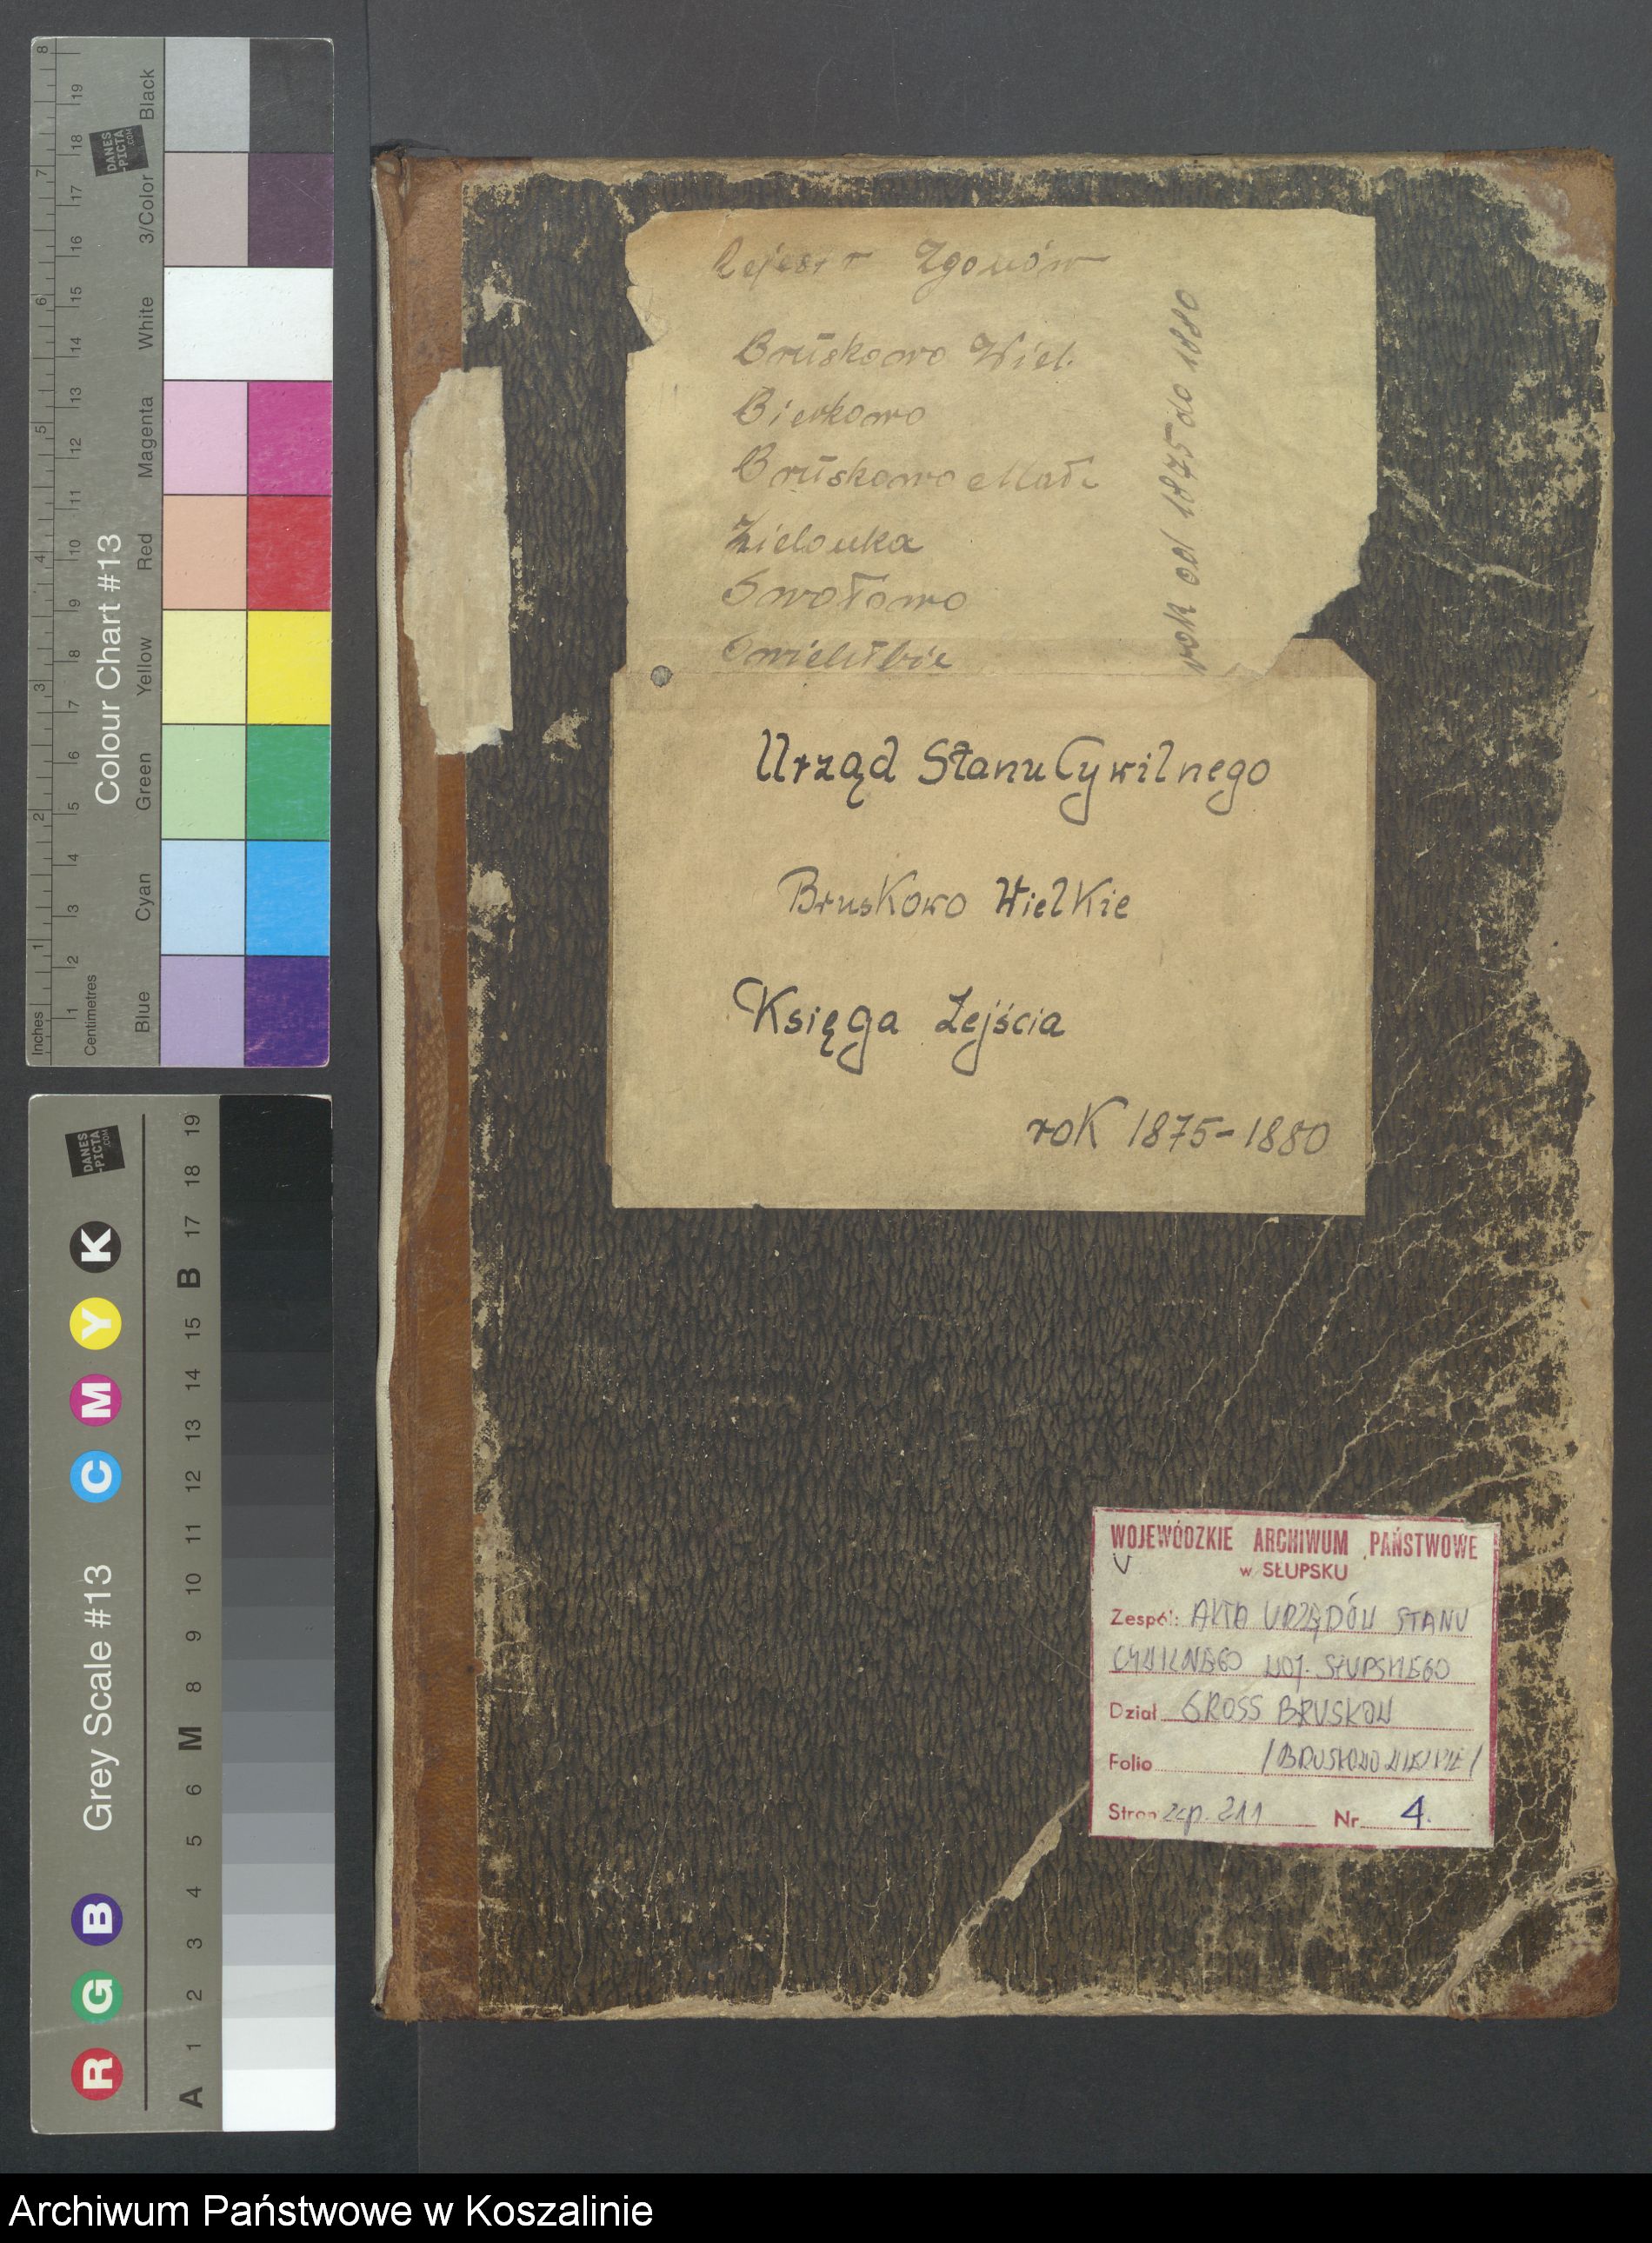 Rejestr Zgonów
Bruskowo Wiel.
Bierkowo
Bruskowo Małe
Zielonka
Swołowo
Swielubie
rok od 1875 do 1880
Urząd Stanu Cywilnego
Bruskowo Wielkie
Księga Zejścia
rok 1875-1880
WOJEWÓDZKIE ARCHIWUM PAŃSTWOWE
w SŁUPSKU
Zespół: AKTA URZĘDÓW STANU
CYWILNEGO WOJ. SŁUPSKIEGO
Dział GROSS BRUSKOW
Folio /BRUSKOWO WIELKIE/
Stron zap. 211 Nr 4.
Inches
Centimetres
1 2 3 4 5 6 7 8
1 2 3 4 5 6 7 8 9 10 11 12 13 14 15 16 17 18 19
Colour Chart #13
Blue Cyan Green Yellow Red Magenta White 3/Color Black
DANES
-PICTA
.COM
R G B Grey Scale #13 C M Y K
DANES
-PICTA
.COM
A 1 2 3 4 5 6 M 8 9 10 11 12 13 14 15 B 17 18 19
Archiwum Państwowe w Koszalinie